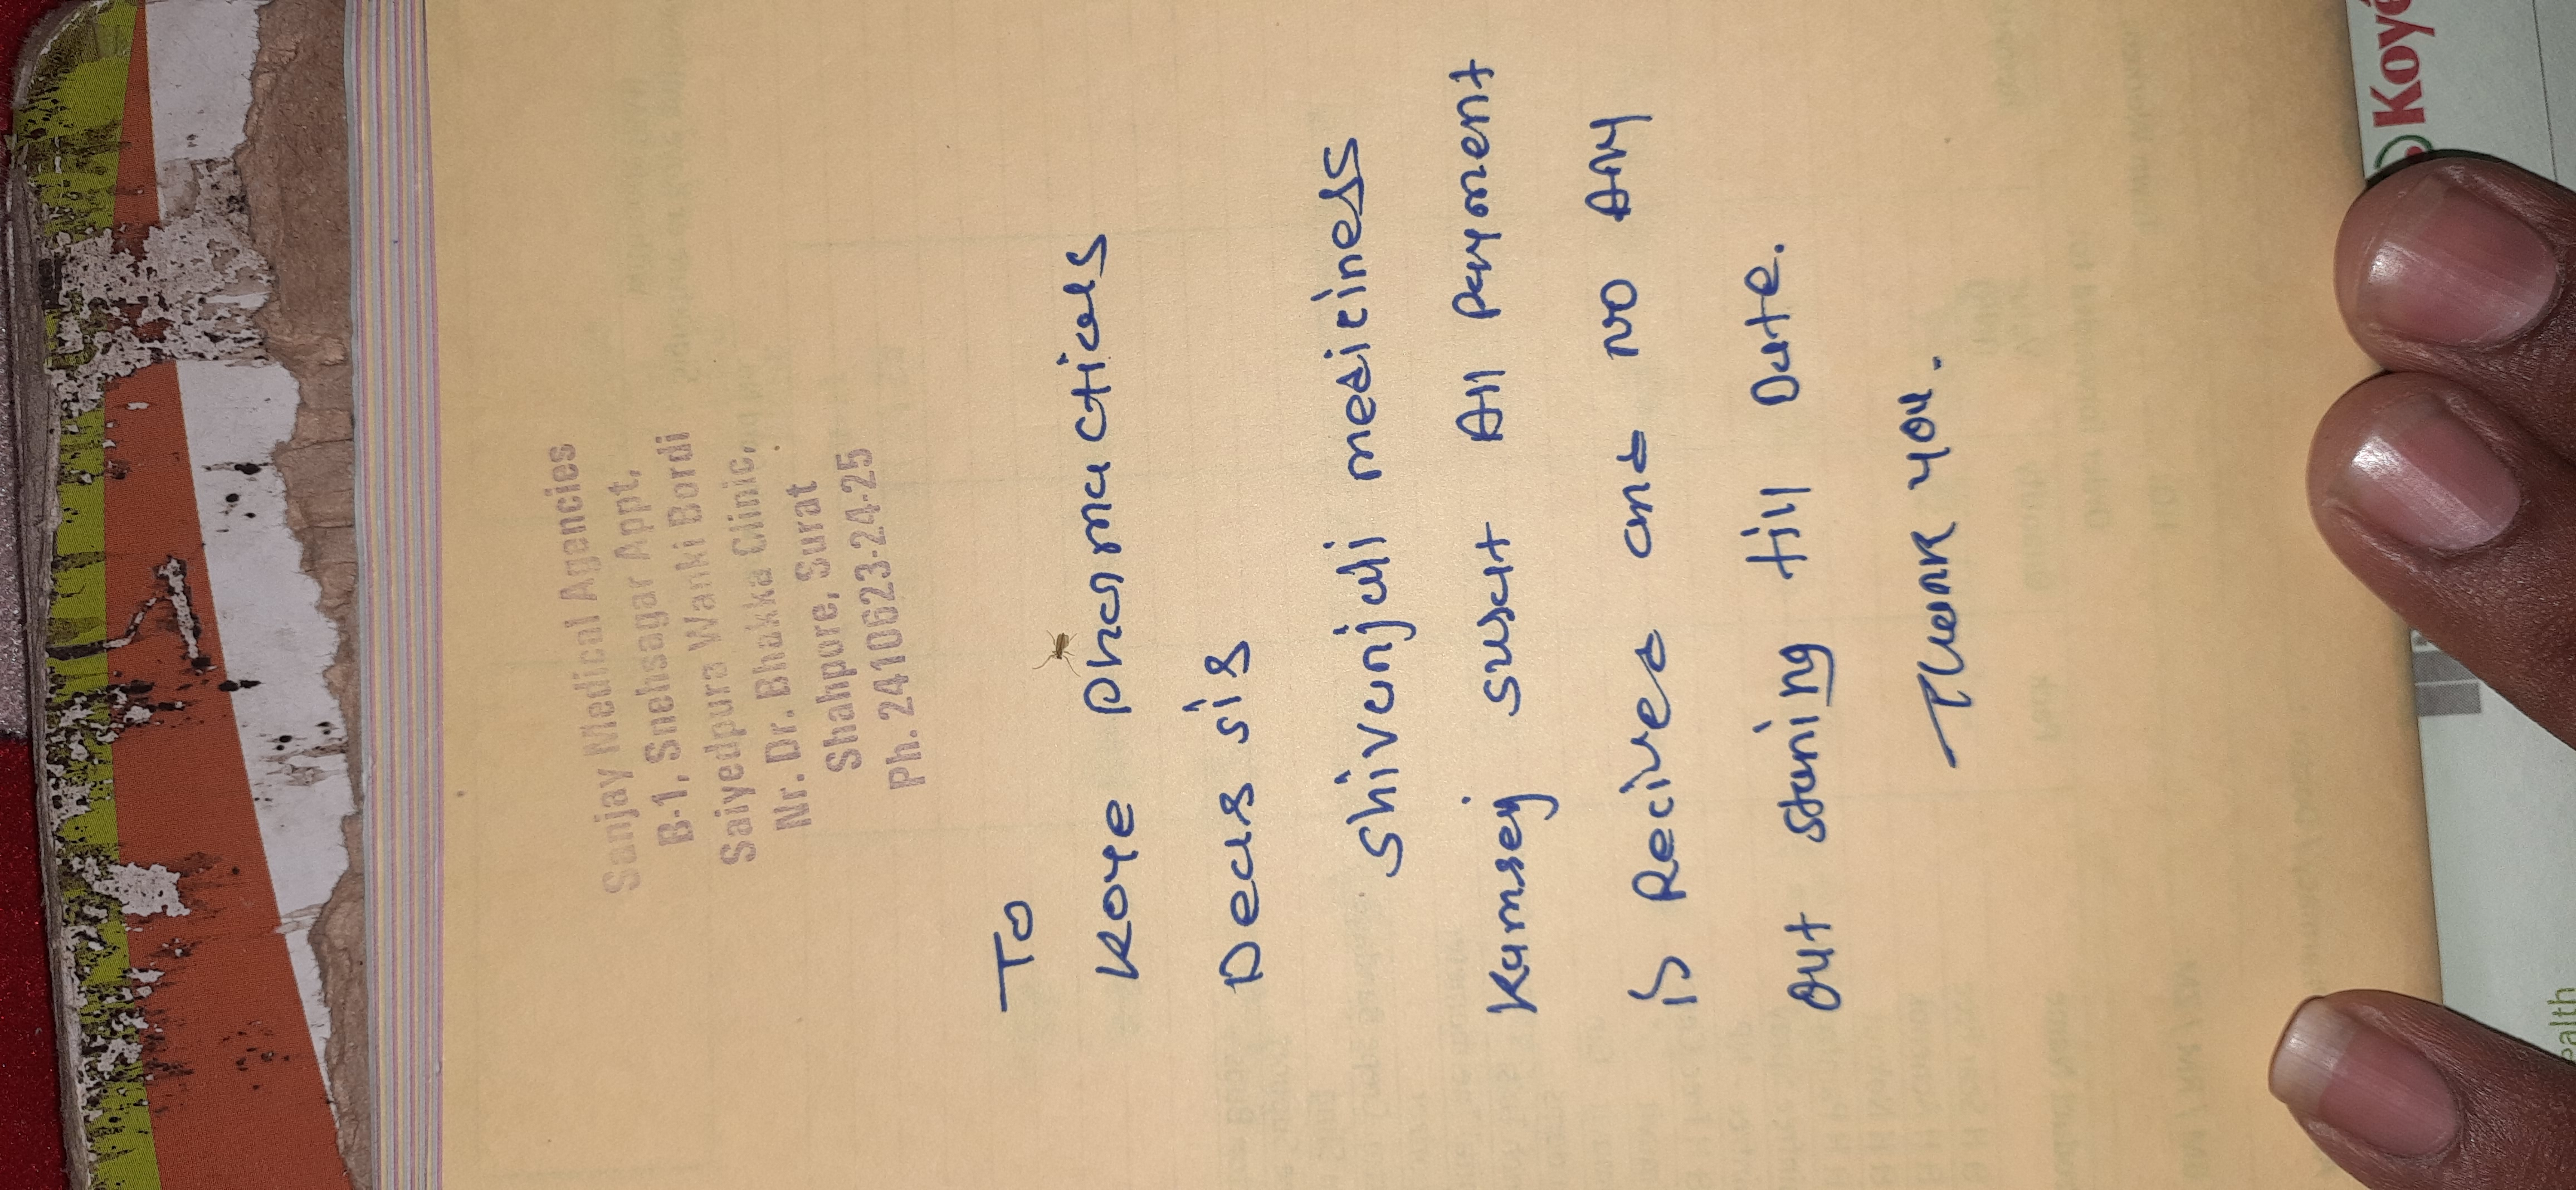 Sanjay Medical Agencies
B-1, Snehsagar Appt,
Saiyedpura Wanki Bordi
Nr. Dr. Bhakka Clinic,
Shahpore, Surat
Ph. 2410623-24-25
To
Koye pharmacticals
Dear sir
Shivanjali medicines
Kamrej surat All payment
is Recived and no Any
out staning till Date.
Thank you.
Koyé
ealth